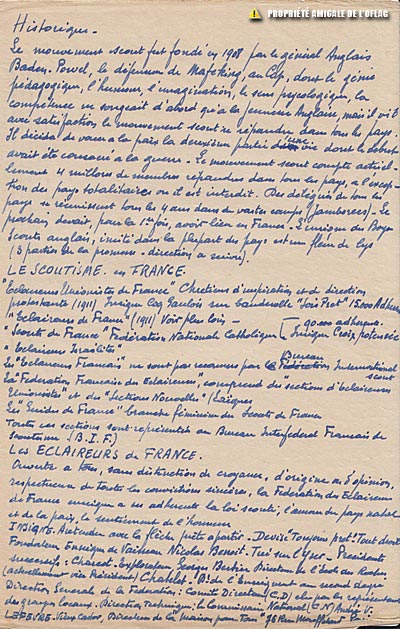 PROPRIÉTÉ AMICALE DE L'OFLAG
Historique -
Le mouvement scout fut fondé en 1908 par le général Anglais
Baden. Powel, le défenseur de Mafeking, au Cap, dont le génie
pédagogique, l'humour, l'imagination, le sens psycologique, la
compétence ne songeait d'abord qu'à la jeunesse Anglaise, mais il vit
avec satisfaction le mouvement scout se répandre dans tous les pays.
Il décida de vouer à la paix la deuxième partie d'une vie dont le début
avait été consacré à la guerre - Le mouvement scout compte actuel-
lement 4 millions de membres répandus dans tous les pays, à l'excep-
tion de pays totalitaires où il est interdit. Des délégués de tous les
pays se réunissent tous les 4 ans dans de vastes camps (Jamborees) - Le
prochain devait, pour la 1ère fois, avoir lieu en France - L'insigne des Boys
Scouts anglais, imité dans la plupart des pays est un fleur de lys
(3 parties de la promesse - direction à suivre).
LE SCOUTISME. en FRANCE.
"Eclaireurs Unionistes de France" Chrétiens d'inspiration et de direction
protestante (1911) Insigne Coq Gaulois sur banderolle "Sois Prêt" 15.000 Adhér
"Eclaireurs de France" (1911) Voir plus loin -
"Scouts de France" Fédération Nationale Catholique 90.000 adhérents. Insigne Croix potencée
"Eclaireurs Israélites"
Les "Eclaireurs Français" ne sont pas reconnus par le Bureau International
La "Fédération Française des Eclaireuses", comprend des sections d'éclaireuses
Unionistes" et des "Sections Nouvelles" Laïques
Les "Guides de France" branche féminine des Scouts de France
Toutes ces sections sont représentées au Bureau Interfédéral Français de
Scoutisme (B.I.F.)
LES ECLAIREURS de FRANCE.
Ouverte à tous, sans distinction de croyance, d'origine, d'opinion,
respectueux de toutes les convictions sincères, la Fédération des Eclaireurs
de France enseigne à ses adhérents la loi scoute, l'amour du pays natal
et de la paix, le sentiment de l'honneur
INSIGNE. la flèche - Devise "Toujours prêt" Tout droit
Fondateur Enseigne de Vaisseau Nicolas Benoit. Tué sur l'Yser - Présidents
successifs : Charcot - Explorateur Georges Bertier Directeur de l'école des Roches
(actuellement vice Président) Chatelet - D. de l'Enseignement au second degré
Direction Générale de la Fédération : Comité Directeur (C.D) élu par les représentants
des groupes locaux. Direction Technique : le Commissaire National (C.N) André
LEFEVRE. Vieux Castor, Directeur de la "maison pour Tous" 76 Rue Mouffetard